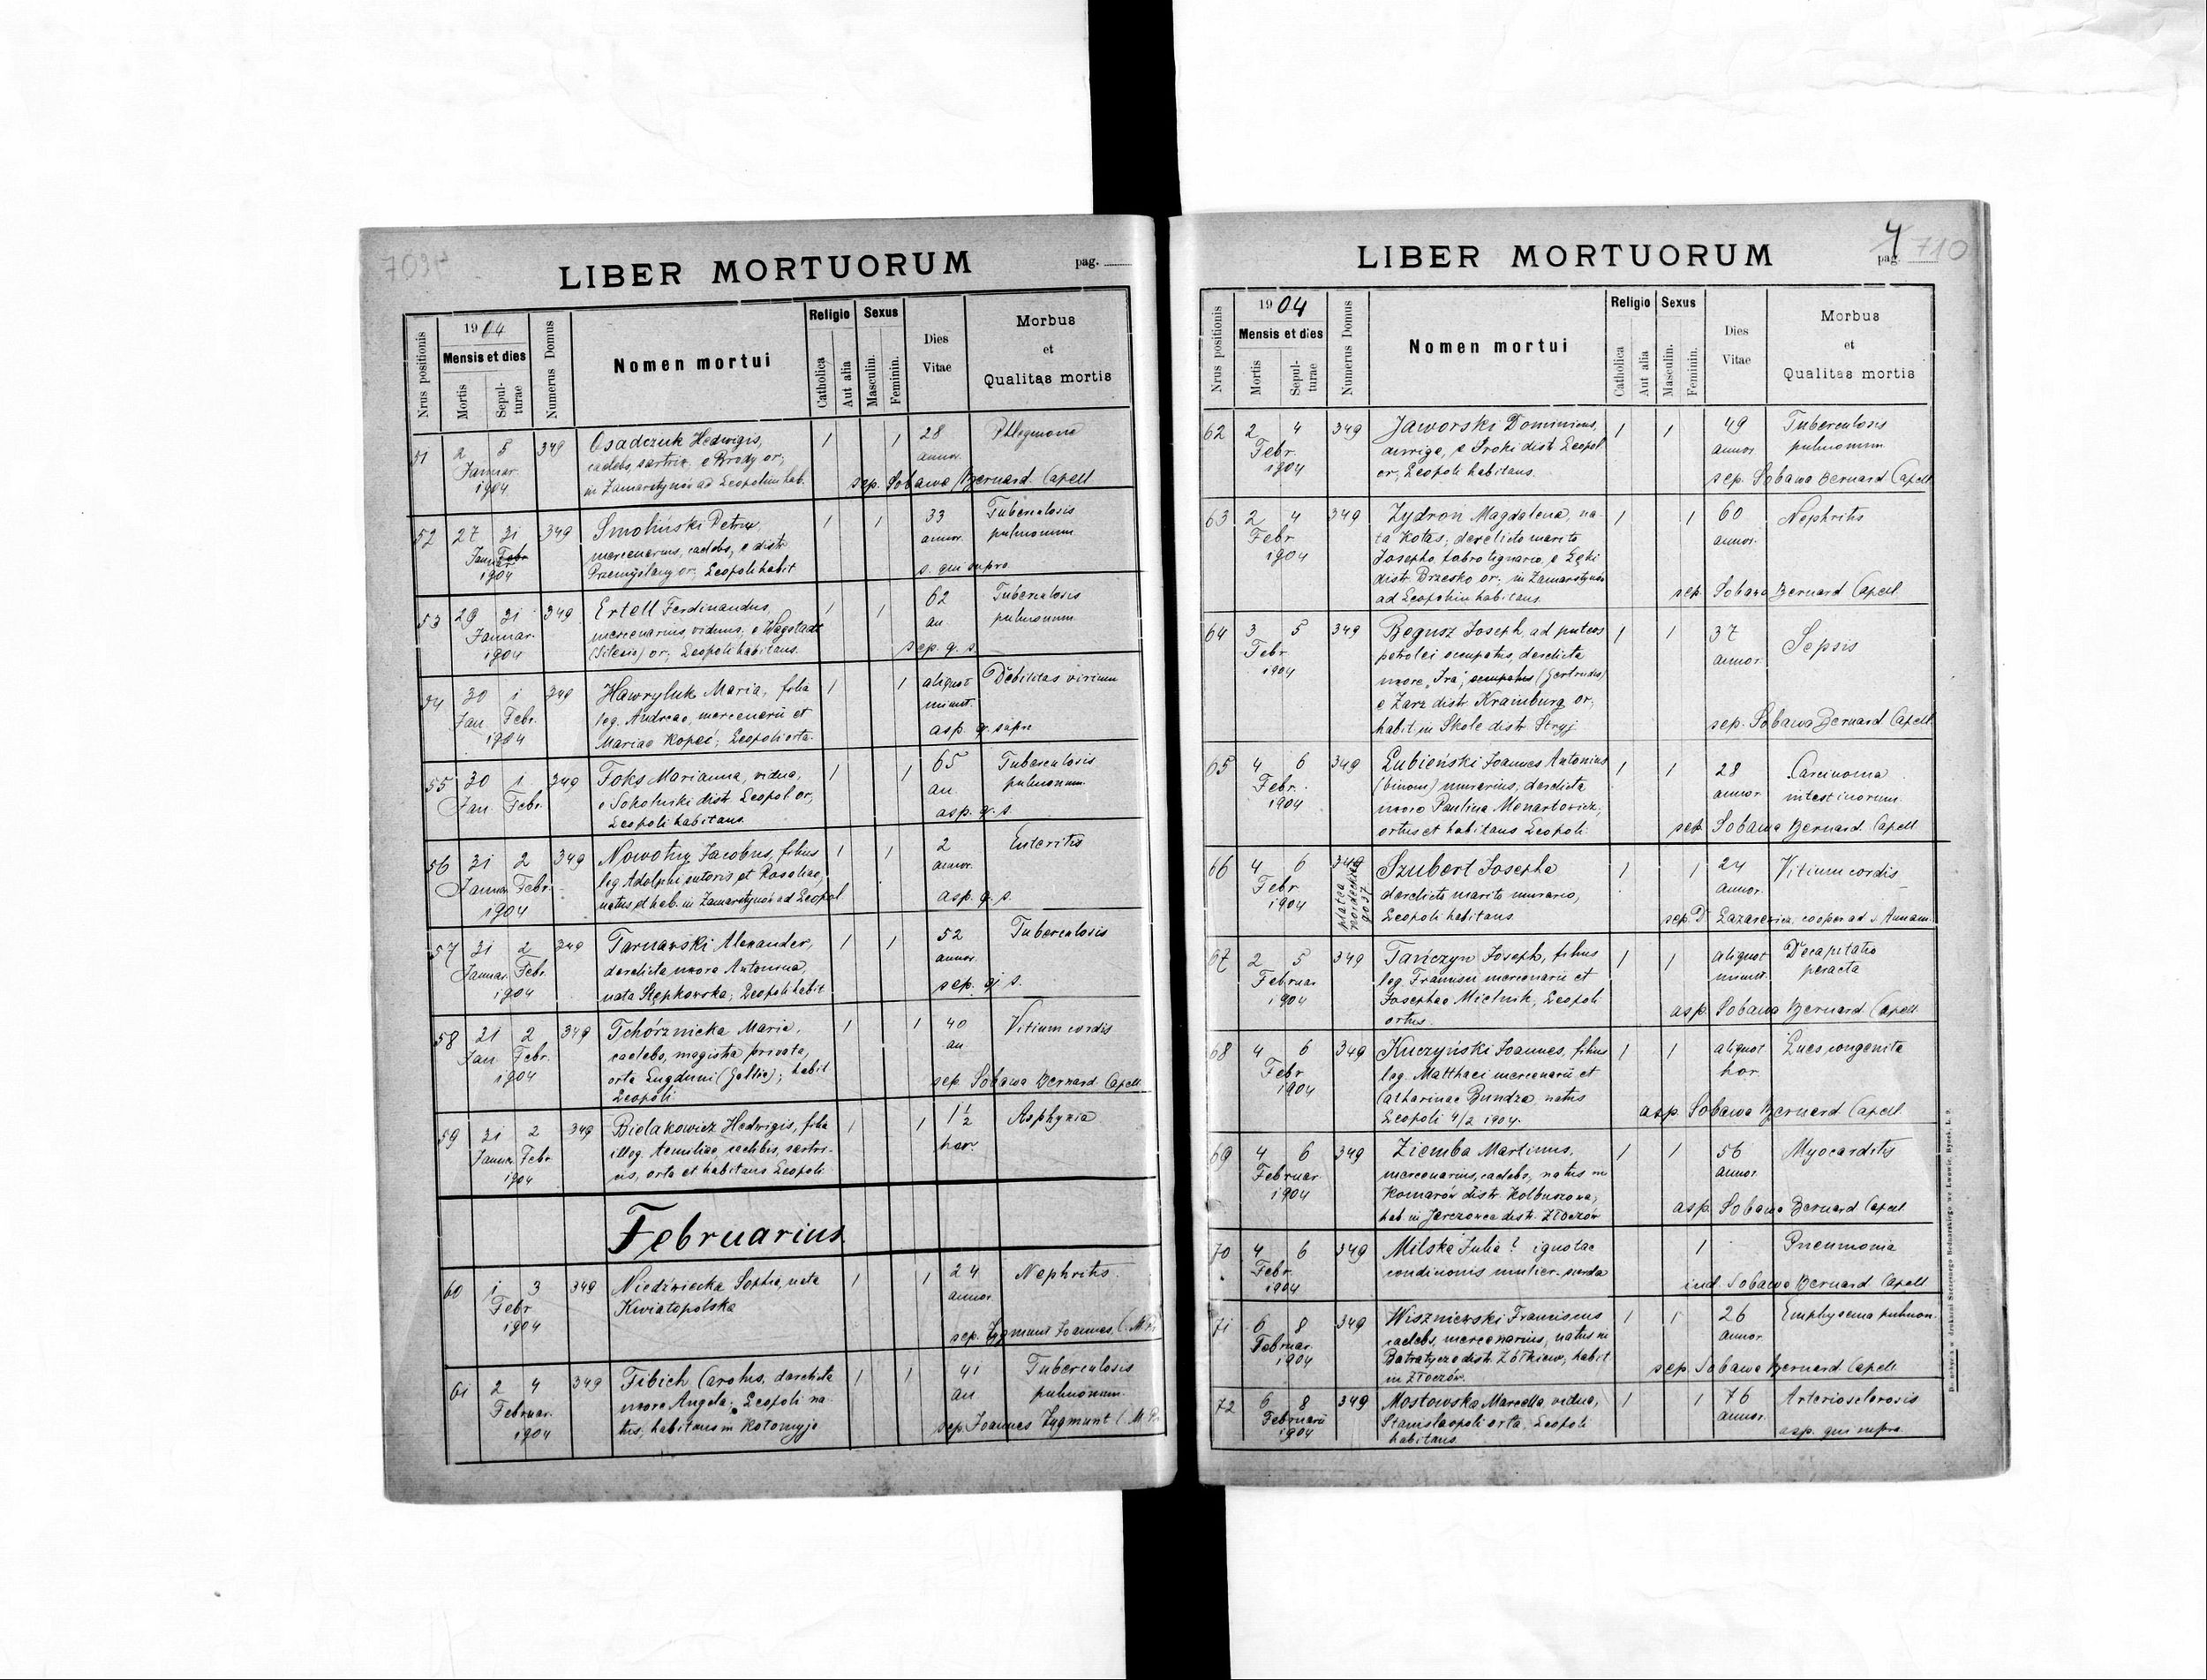 LIBER MORTUORUM
pag.
Nrus positionis
1904
Mensis et dies
Mortis
Sepulturae
Numerus Domus
Nomen mortui
Religio
Catholica
Aut alia
Sexus
Masculin.
Feminin.
Dies
Vitae
Morbus
et
Qualitas mortis
51 2 5 349 Osadczuk Hedwigis, 1 1 28 Phlegmone
Januar. caelebs, sartrix, e Brody or; annor.
1904 in Zamarstynów ad Leopolim hab. sep. Sobawa Bernard. Capell
52 27 31 349 Smoliński Petrus, 1 1 33 Tuberculosis
Januar mercenarius, caelebs, e distr annor. pulmonum
1904 Przemyślany or; Leopoli habit s. qui supra
53 29 31 349 Ertell Ferdinandus, 1 1 62 Tuberculosis
Januar. mercenarius, viduus, e Wagstadt an pulmonum
1904 (Silesia) or; Leopoli habitans. sep. q. s.
54 30 1 349 Hawryluk Maria, filia 1 1 aliquot Debilitas virium
Jan. Febr. leg. Andreae, mercenarii et minut.
1904 Mariae Kopeć; Leopoli orta. asp. q. supra
55 30 1 349 Foks Marianna, vidua, 1 1 65 Tuberculosis
Jan. Febr. e Sokolniki distr Leopol or; an. pulmonum.
Leopoli habitans. asp. q. s.
56 31 2 349 Nowotny Jacobus, filius 1 1 2 Enteritis
Januar Febr. leg Adolphi sutoris et Rosaliae, annor.
1904 natus et hab. in Zamarstynów ad Leopol asp. q. s.
57 31 2 349 Tarnawski Alexander, 1 1 52 Tuberculosis
Januar. Febr. derelicta uxore Antonina, annor.
1904 nata Stępkowska; Leopoli habit. sep. q. s.
58 31 2 349 Tchórznicka Maria, 1 1 40 Vitium cordis
Jan Febr. caelebs, magistra privata, an.
1904 orta Lugduni (Gallia); habit sep. Sobawa Bernard. Capell
Leopoli
59 31 2 349 Bielakowicz Hedwigis, filia 1 1 1 1/2 Asphyxia
Januar Febr illeg. Aemiliae, caelibis, sartri- hor.
1904 cis, orta et habitans Leopoli
Februarius
60 1 3 349 Niedźwiecka Sophia, nata 1 1 24 Nephritis.
Febr Kwiatopolska annor.
1904 sep. Zygmunt Joannes
61 2 4 349 Fibich Carolus, derelicta 1 1 41 Tuberculosis
Februar. uxore Angela; Leopoli na- an pulmonum.
1904 tus, habitans in Kołomyja sep. Joannes Zygmunt
4
710
LIBER MORTUORUM
pag.
Nrus positionis
1904
Mensis et dies
Mortis
Sepulturae
Numerus Domus
Nomen mortui
Religio
Catholica
Aut alia
Sexus
Masculin.
Feminin.
Dies
Vitae
Morbus
et
Qualitas mortis
62 2 4 349 Jaworski Dominicus, 1 1 49 Tuberculosis
Febr. auriga, e Sroki distr Leopol annor pulmonum
1904 or; Leopoli habitans. sep. Sobawa Bernard Capell
63 2 4 349 Zydroń Magdalena, na- 1 1 60 Nephritis
Febr ta Kotas; derelicto marito annor.
1904 Josepho, fabro lignario, e Łęki
distr Brzesko or; in Zamarstynów
ad Leopolim habitans sep. Sobawa Bernard Capell
64 3 5 349 Bogusz Joseph, ad puteos 1 1 37 Sepsis
Febr petrolei occupatus, derelicta annor.
1904 uxore "Tra" (Gertrudis)
e Zarz distr. Krainburg or;
habit in Skole distr. Stryj sep. Sobawa Bernard Capell
65 4 6 349 Łubieński Joannes Antonius 1 1 28 Carcinoma
Febr. (binom) murarius, derelicta annor intestinorum.
1904 uxore Paulina Monartowicz;
ortus et habitans Leopoli. sep. Sobawa Bernard. Capell
66 4 6 349 Szubert Josepha 1 1 24 Vitium cordis
Febr derelicto marito murario, annor.
1904 Leopoli habitans sep. D Łazarewicz, cooper ad s Annam.
platea
67 2 5 349 Tańczyn Joseph, filius 1 1 aliquot Decapitatio
Februar leg Francisci mercenarii et minut. peracta
1904 Josephae Mielnik, Leopoli
ortus. asp. Sobawa Bernard Capell
68 4 6 349 Kuczyński Joannes, filius 1 1 aliquot Lues congenita
Febr leg. Matthaei mercenarii et hor.
1904 Catharinae Bundza, natus
Leopoli 4/2 1904. asp. Sobawa Bernard Capell
69 4 6 349 Ziemba Martinus, 1 1 56 Myocarditis
Februar. mercenarius, caelebs, natus in annor.
1904 Komarów distr Kolbuszowa,
hab. in Jarczowce distr. Złoczów asp. Sobawa Bernard Capell
70 4 6 349 Milska Julia? ignotae 1 Pneumonia
Febr. condicionis mulier surda
1904 ind. Sobawa Bernard Capell
71 6 8 349 Wiszniewski Franciscus 1 1 26 Emphysema pulmon.
Februar. caelebs, mercenarius, natus in annor.
1904 Batiatycze distr. Żółkiew; habit sep. Sobawa Bernard Capell
in Złoczów.
72 6 8 349 Mostowska Marcella, vidua, 1 1 76 Arteriosclerosis
Februarii Stanislaopoli orta, Leopoli annor.
1904 habitans. asp. qui supra.